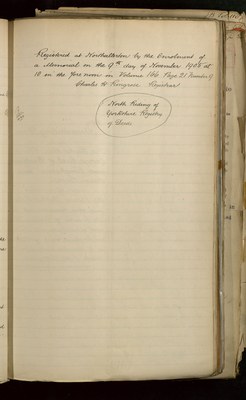 Registered at Northallerton by the Enrolment of
a Memorial on the 9th day of November 1905 at
10 in the forenoon in Volume 166 Page 21 Number 9
Charles H. Registrar
North Riding of
Yorkshire Registry
of Deeds